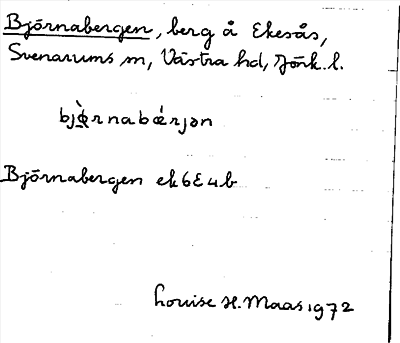 Björnabergen, berg å Ekesås,
Svenarums sn, Västra hd, Jönk. l.
bjæ̀rnabǽrjən
Björnabergen ek 6E4b
Louise H. Maas 1972